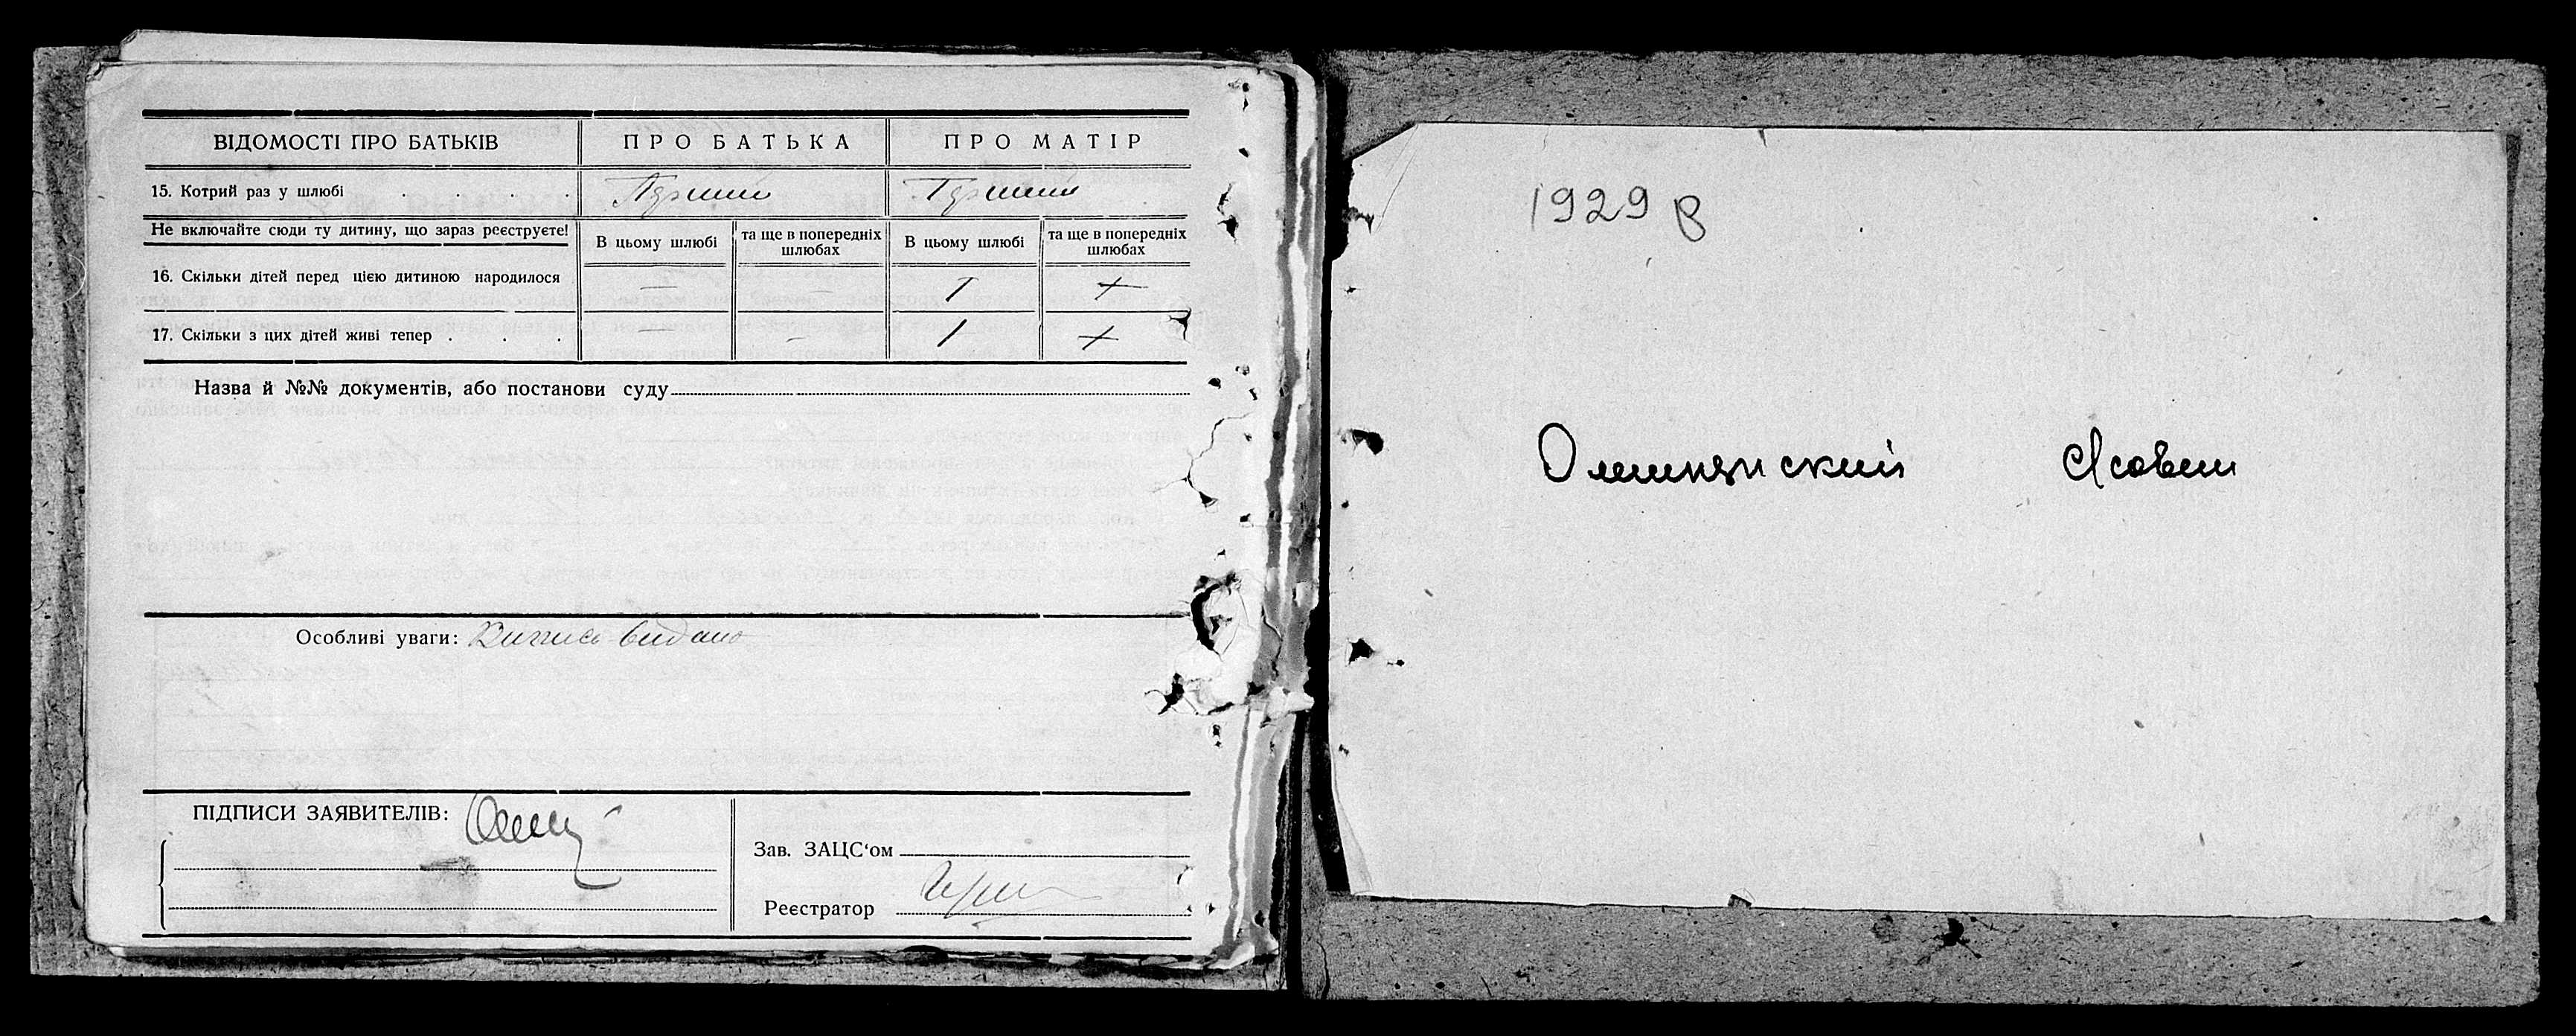 ВІДОМОСТІ ПРО БАТЬКІВ ПРО БАТЬКА ПРО МАТІР
15. Котрий раз у шлюбі . . . . Перший Перший
Не включайте сюди ту дитину, що зараз реєструєте! В цьому шлюбі та ще в попередніх шлюбах В цьому шлюбі та ще в попередніх шлюбах
16. Скільки дітей перед цією дитиною народилося — — 1 +
17. Скільки з цих дітей живі тепер . . . - 1 +
Назва й №№ документів, або постанови суду
Особливі уваги: Випись видано
ПІДПИСИ ЗАЯВИТЕЛІВ:
Зав. ЗАЦС‘ом
Реєстратор
1929 р